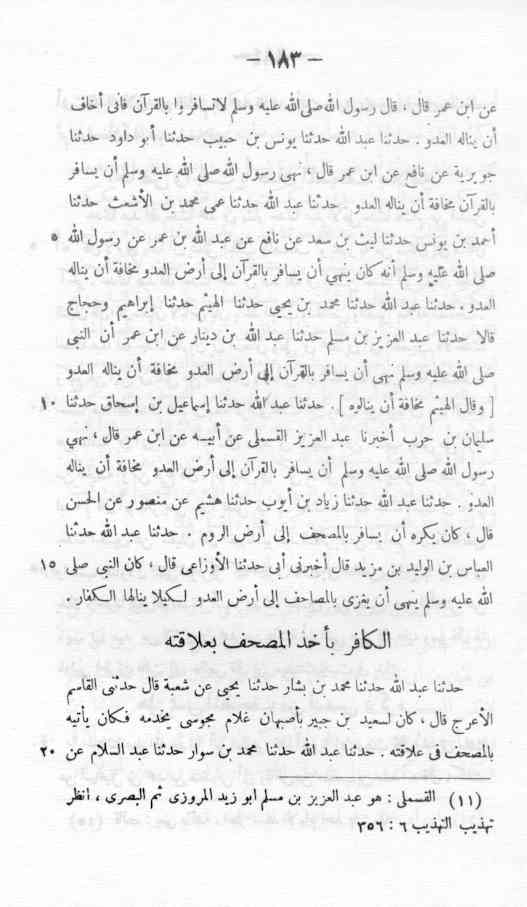 – ١٨٣ –
عن ابن عمر قال، قال رسول الله صلى الله عليه وسلم لا تسافروا بالقرآن فانى أخاف
أن يناله العدو . حدثنا عبد الله حدثنا يونس بن حبيب حدثنا أبو داود حدثنا
جويرية عن نافع عن ابن عمر قال، نهى رسول الله صلى الله عليه وسلم أن يسافر
بالقرآن مخافة أن يناله العدو . حدثنا عبد الله حدثنا عمى محمد بن الأشعث حدثنا
أحمد بن يونس حدثنا ليث بن سعد عن نافع عن عبد الله بن عمر عن رسول الله ٥
صلى الله عليه وسلم أنه كان ينهى أن يسافر بالقرآن إلى أرض العدو مخافة أن يناله
العدو . حدثنا عبد الله حدثنا محمد بن يحيى حدثنا الهيثم حدثنا إبراهيم وحجاج
قالا حدثنا عبد العزيز بن مسلم حدثنا عبد الله بن دينار عن ابن عمر أن النبى
صلى الله عليه وسلم نهى أن يسافر بالقرآن إلى أرض العدو مخافة أن يناله العدو
[ وقال الهيثم مخافة أن ينالوه ] . حدثنا عبد الله حدثنا إسماعيل بن إسحاق حدثنا ١٠
سليمان بن حرب أخبرنا عبد العزيز القسملى عن أبيسه عن ابن عمر قال، نهى
رسول الله صلى الله عليه وسلم أن يسافر بالقرآن إلى أرض العدو مخافة أن يناله
العدو . حدثنا عبد الله حدثنا زياد بن أيوب حدثنا هشيم عن منصور عن الحسن
قال، كان يكره أن يسافر بالمصحف إلى أرض الروم . حدثنا عبد الله حدثنا
العباس بن الوليد بن مزيد قال أخبرنى أبى حدثنا الأوزاعى قال، كان النبى صلى ١٥
الله عليه وسلم ينهى أن يغزى بالمصاحف إلى أرض العدو لكيلا ينالها الكفار .
الكافر يأخذ المصحف بعلاقته
حدثنا عبد الله حدثنا محمد بن بشار حدثنا يحيى عن شعبة قال حدثنى القاسم
الأعرج قال، كان لسعيد بن جبير بأصبهان غلام مجوسى يخدمه فكان يأتيه
بالمصحف فى علاقته . حدثنا عبد الله حدثنا محمد بن سوار حدثنا عبد السلام عن ٢٠
(١١) القسملى : هو عبد العزيز بن مسلم ابو زيد المروزى ثم البصرى، انظر
تهذيب التهذيب ٦ : ٣٥٦